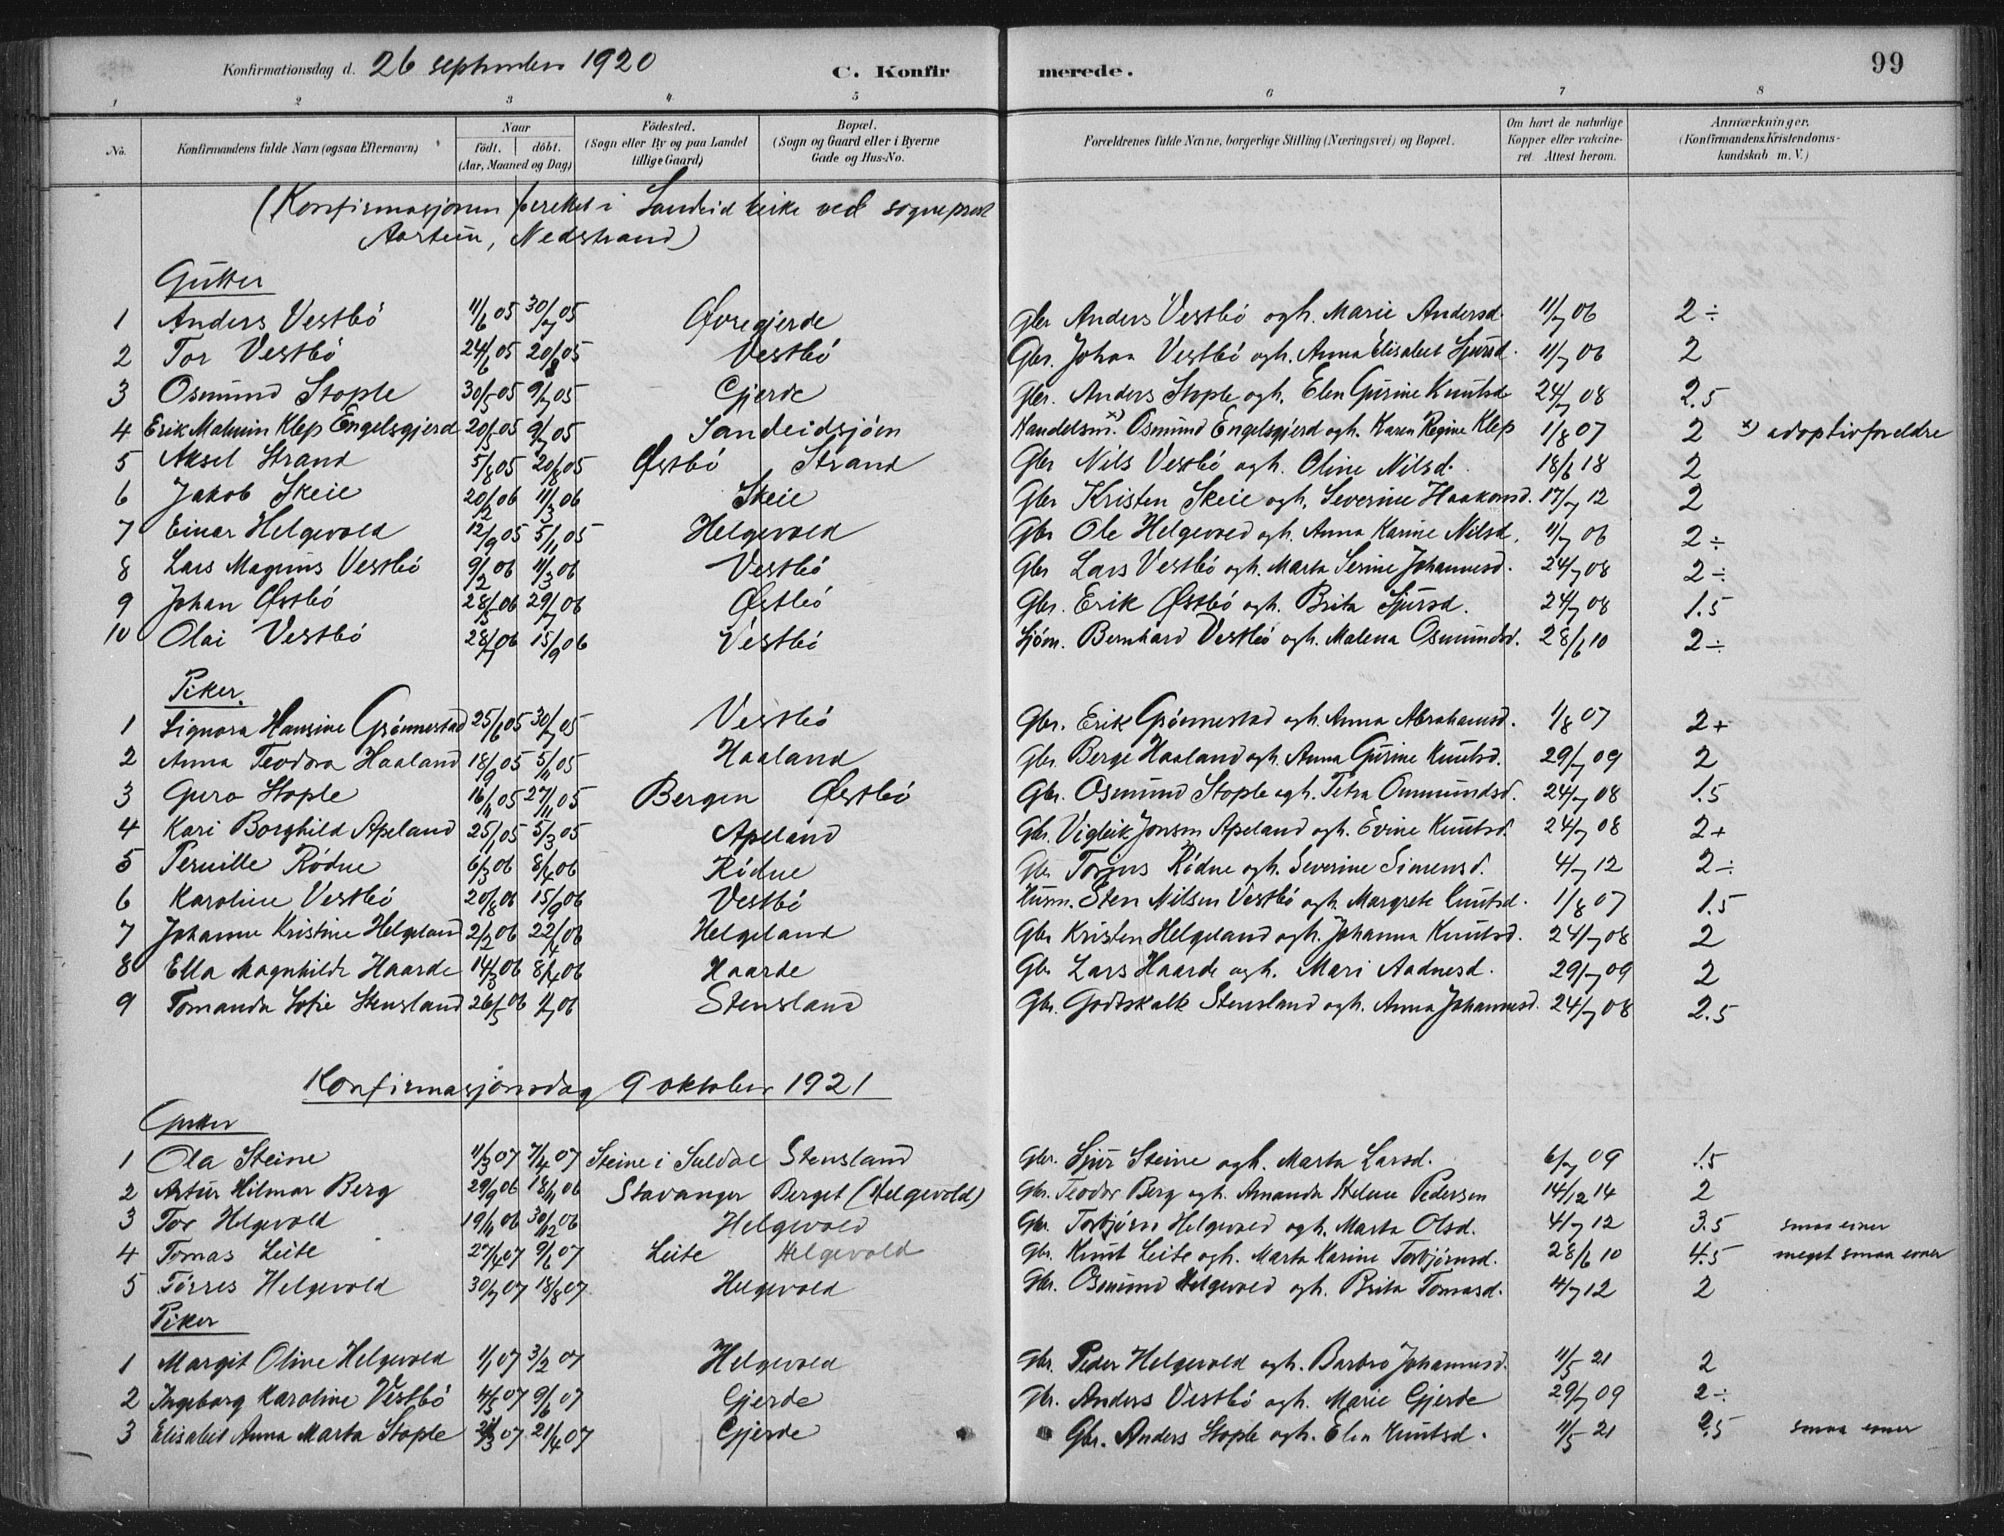 Konfirmationsdag d. 26 september 1920 C. Konfirmerede. 99
1 2 3 4 5 6 7 8
No. Konfirmandens fulde Navn (ogsaa Efternavn) Naar født. døbt. (Aar, Maaned og Dag) Fødested. (Sogn eller By og paa Landet tillige Gaard) Bopæl. (Sogn og Gaard eller i Byerne Gade og Hus-No. Forældrenes fulde Navne, borgerlige Stilling (Næringsvei) og Bopæl. Om havt de naturlige Kopper eller vakcineret. Attest herom. Anmærkninger. (Konfirmandens Kristendomskundskab m. V.)
(Konfirmasjonen i Sandeid kirke ved sogneprest
Aarstein, Nedstrand)
Gutter
1 Anders Vestbö 11/6 05 30/7 05 Øvregjerde Gbr Anders Vestbö og h. Marie Andersd. 11/7 06 2÷
2 Tor Vestbö 24/6 05 20/8 05 Vestbö Gbr. Johan Vestbö og h. Anna Elisabet Sjursd. 11/7 06 2
3 Osmund Stople 30/5 05 9/7 05 Gjerde Gbr. Anders Stople og h. Elen Gurine Knutsd 24/7 08 2.5
4 Erik Malmin Klep Engelsgjerd 20/5 05 9/7 05 Sandeidsjøen Handelsm. x) Osmund Engelsgjerd og h. Karen Regine Klep 1/8 07 2 x) adoptivforeldre
5 Aksel Strand 5/8 05 20/8 05 Østbö Strand Gbr Nils Vestbö og h. Oline Nilsd. 18/6 18 2
6 Jakob Skeie 20/2 06 11/3 06 Skeie Gbr Kristen Skeie og h. Severine Haakonsd. 17/7 12 2
7 Einar Helgevold 12/9 05 5/11 05 Helgevold Gbr Ole Helgevold og h. Anna Karine Nilsd. 11/7 06 2÷
8 Lars Magnus Vestbö 9/2 06 11/3 06 Vestbö Gbr Lars Vestbö og h. Marta Serine Johannesd. 24/7 08 2÷
9 Johan Østbö 28/5 06 29/7 06 Østbö Gbr. Erik Østbö og h. Brita Sjursd. 24/7 08 1.5
10 Olai Vestbö 28/7 06 15/9 06 Vestbö Sjöm. Bernhard Vestbö og h. Malena Osmundsd. 28/6 10 2÷
Piker.
1 Signora Hansine Grönnestad 25/6 05 30/7 05 Vestbö Gbr. Erik Grönnestad og h. Anna Abrahamsd. 1/8 07 2+
2 Anna Teodora Haaland 18/9 05 5/11 05 Haaland Gbr. Berge Haaland og h. Anna Gurine Knutsd. 29/7 09 2
3 Guro Stople 16/11 05 27/11 05 Bergen Østbö Gbr. Osmund Stople og h. Petra Ommundsd. 24/7 08 1.5
4 Kari Borghild Apeland 25/1 05 5/3 05 Apeland Gbr. Vigleik Jonsen Apeland og h. Evine Knutsd. 24/7 08 2+
5 Pernille Rødne 6/3 06 8/4 06 Rødne Gbr Torjus Rødne og h. Severine Simensd. 4/7 12 2÷
6 Karoline Vestbö 20/8 06 15/9 06 Vestbö Husm. Sten Nilsen Vestbö og h. Margrete Knutsd. 1/8 07 1.5
7 Johanne Kristine Helgeland 2/2 06 22/4 06 Helgeland Gbr Kristen Helgeland og h. Johanna Knutsd. 24/7 08 2
8 Ella Magnhilde Haarde 14/3 06 8/4 06 Haarde Gbr Lars Haarde og h. Mari Aadnesd. 29/7 09 2
9 Tomanda Sofie Stensland 26/5 06 1/7 06 Stensland Gbr. Godtskalk Stensland og h. Anna Johannesd. 24/7 08 2.5
Konfirmasjonsdag 9 oktober 1921
Gutter
1 Ola Steine 11/3 07 7/4 07 Steine i Suldal Stensland Gbr. Sjur Steine og h. Marta Larsd. 6/7 09 1.5
2 Artur Hilmar Berg 29/9 06 18/11 06 Stavanger Berget (Helgevold) Gbr. Teodor Berg og h. Amanda Helene Pedersen 14/12 14 2
3 Tor Helgevold 19/11 06 30/12 06 Helgevold Gbr. Torbjørn Helgevold og h. Marta Olsd. 4/7 12 3.5 smaa evner
4 Tomas Leite 27/4 07 9/6 07 Leite Helgevold Gbr. Knut Leite og h. Marta Karine Torbjörnsd. 28/6 10 4.5 meget smaa evner
5 Törres Helgevold 30/7 07 18/8 07 Helgevold Gbr. Osmund Helgevold og h. Brita Tomasd. 4/7 12 2
Piker
1 Margit Oline Helgevold 1/1 07 3/2 07 Helgevold Gbr. Peder Helgevold og h. Barbro Johannesd. 11/5 21 2
2 Ingeborg Karoline Vestbö 4/5 07 9/6 07 Gjerde Gbr. Anders Vestbö og h. Marie Gjerde 29/7 09 2÷
3 Elisabet Anna Marta Stople 07 21/4 07 Gjerde Gbr. Anders Stople og h. Elen Knutsd. 11/5 21 2.5 smaa evner